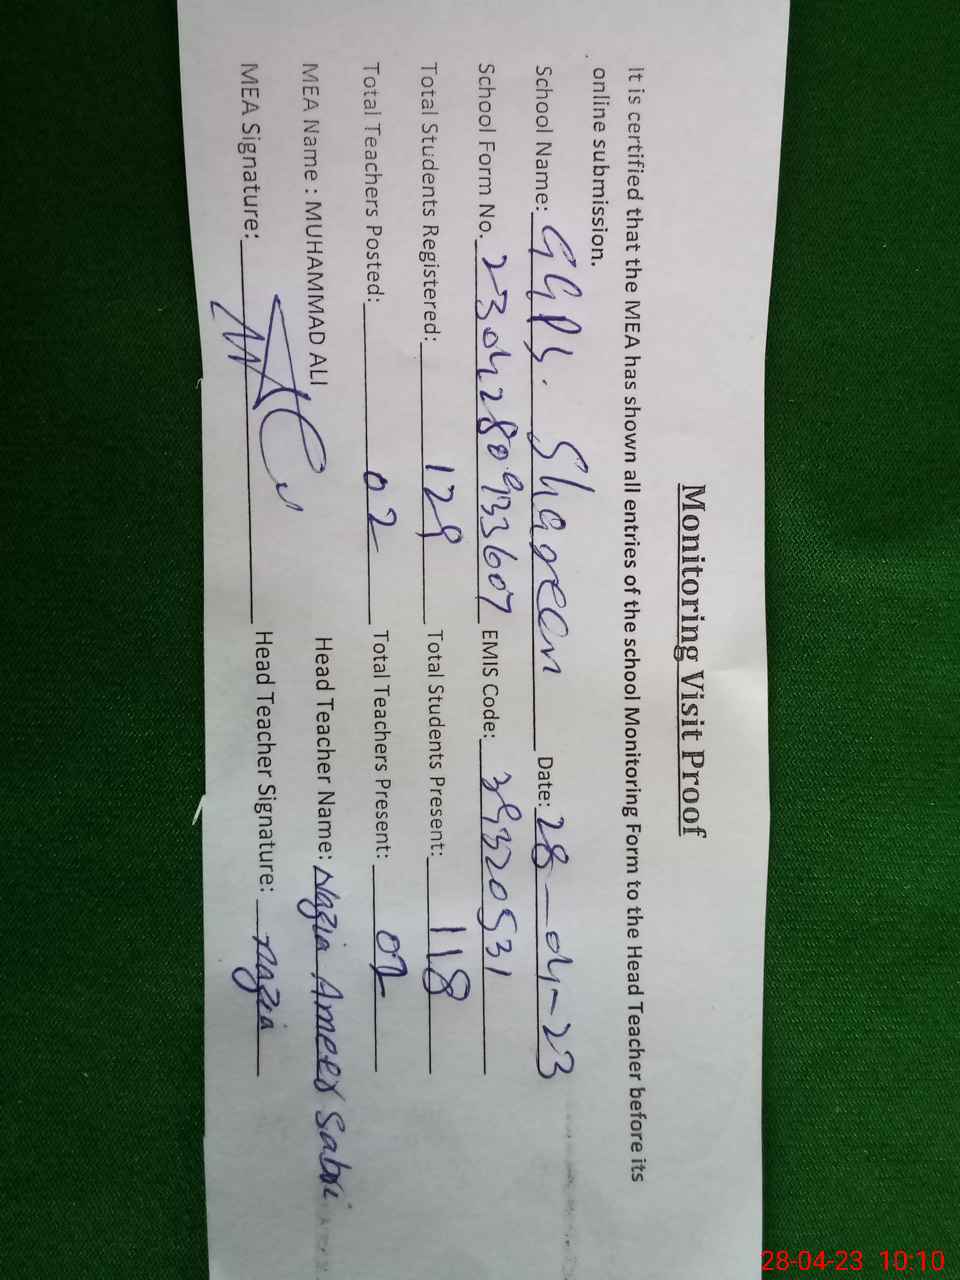 Monitoring Visit Proof
It is certified that the MEA has shown all entries of the school Monitoring Form to the Head Teacher before its
online submission.
School Name: GGPS. Shareen Date: 28-04-23
School Form No. 2304280933607 EMIS Code: 39320531
Total Students Registered: 129 Total Students Present: 118
Total Teachers Posted: 02 Total Teachers Present: 02
MEA Name : MUHAMMAD ALI Head Teacher Name: Nazia Ameer Sabri
MEA Signature: Head Teacher Signature: nazia
28-04-23 10:10